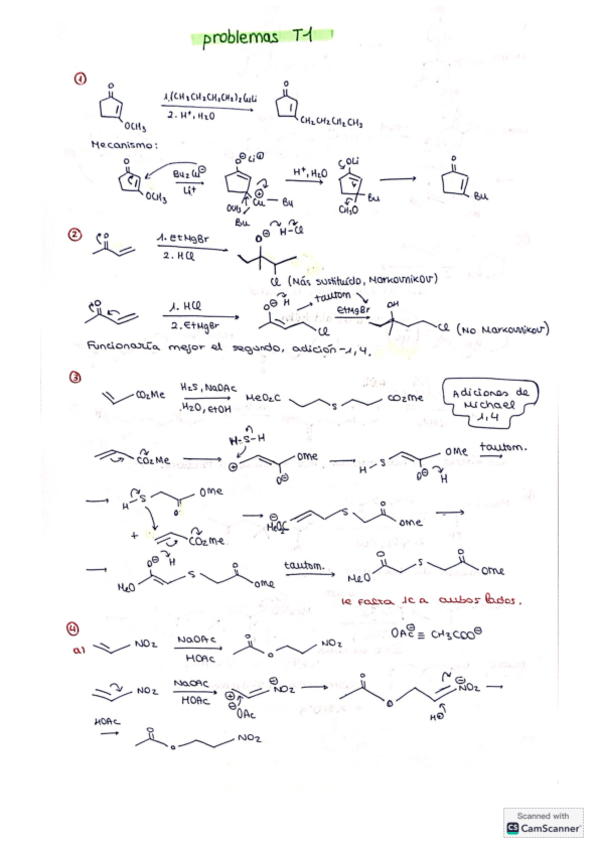 problemas T-1
①
O
1.(CH3CH2CH2CH2)2CuLi
2. H+, H2O
OCH3
O
CH2CH2CH2CH3
Mecanismo:
O
OCH3
Bu2Cu⊖
Li+
O⊖ Li⊕
OCH3
Cu — Bu
Bu
H+, H2O
OLi
Bu
CH3O
O
Bu
②
O
1. EtMgBr
2. HCl
O⊖ H-Cl
Cl (Más sustituído, Markovnikov)
O
1. HCl
2. EtMgBr
O⊖ H
Cl
tautom
EtMgBr
OH
Cl (No Markovnikov)
Funcionaría mejor el segundo, adición-1,4.
③
CO2Me
H2S, NaOAc
H2O, EtOH
MeO2C
S
CO2Me
Adiciones de
Michael
1,4
CO2Me
H-S-H
⊕
OMe
O⊖
H-S
OMe
O⊖ H
tautom.
H
S
OMe
O
+
CO2Me
⊖
MeO2C
S
O
OMe
O⊖ H
MeO
S
O
OMe
tautom.
O
MeO
S
O
OMe
le falta 1C a ambos lados.
④
a)
NO2
NaOAc
HOAc
O
O
NO2
OAc⊖ ≡ CH3COO⊖
NO2
NaOAc
HOAc
⊕
⊖
NO2
⊖OAc
O
O
⊖
NO2
H⊕
HOAc
O
O
NO2
Scanned with
CS CamScanner